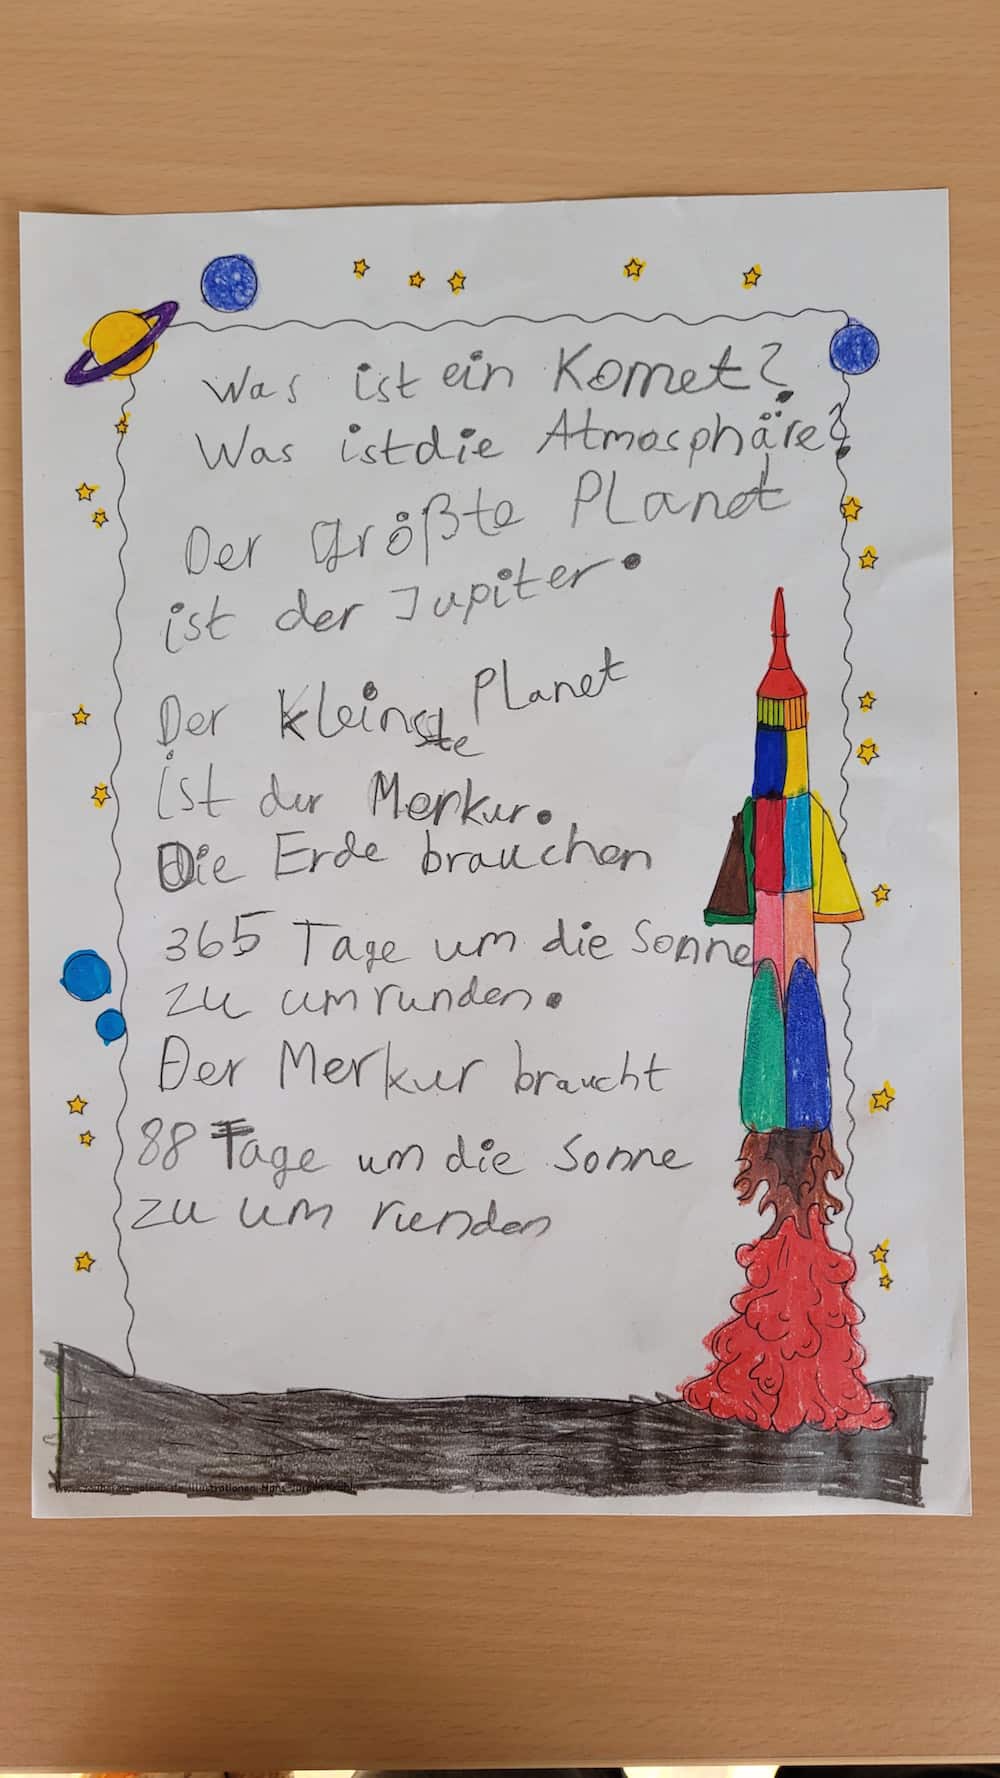 Was ist ein Komet?
Was ist die Atmosphäre?
Der größte Planet
ist der Jupiter.
Der kleinste Planet
ist der Merkur.
Die Erde brauchen
365 Tage um die Sonne
zu umrunden.
Der Merkur braucht
88 Tage um die Sonne
zu um runden